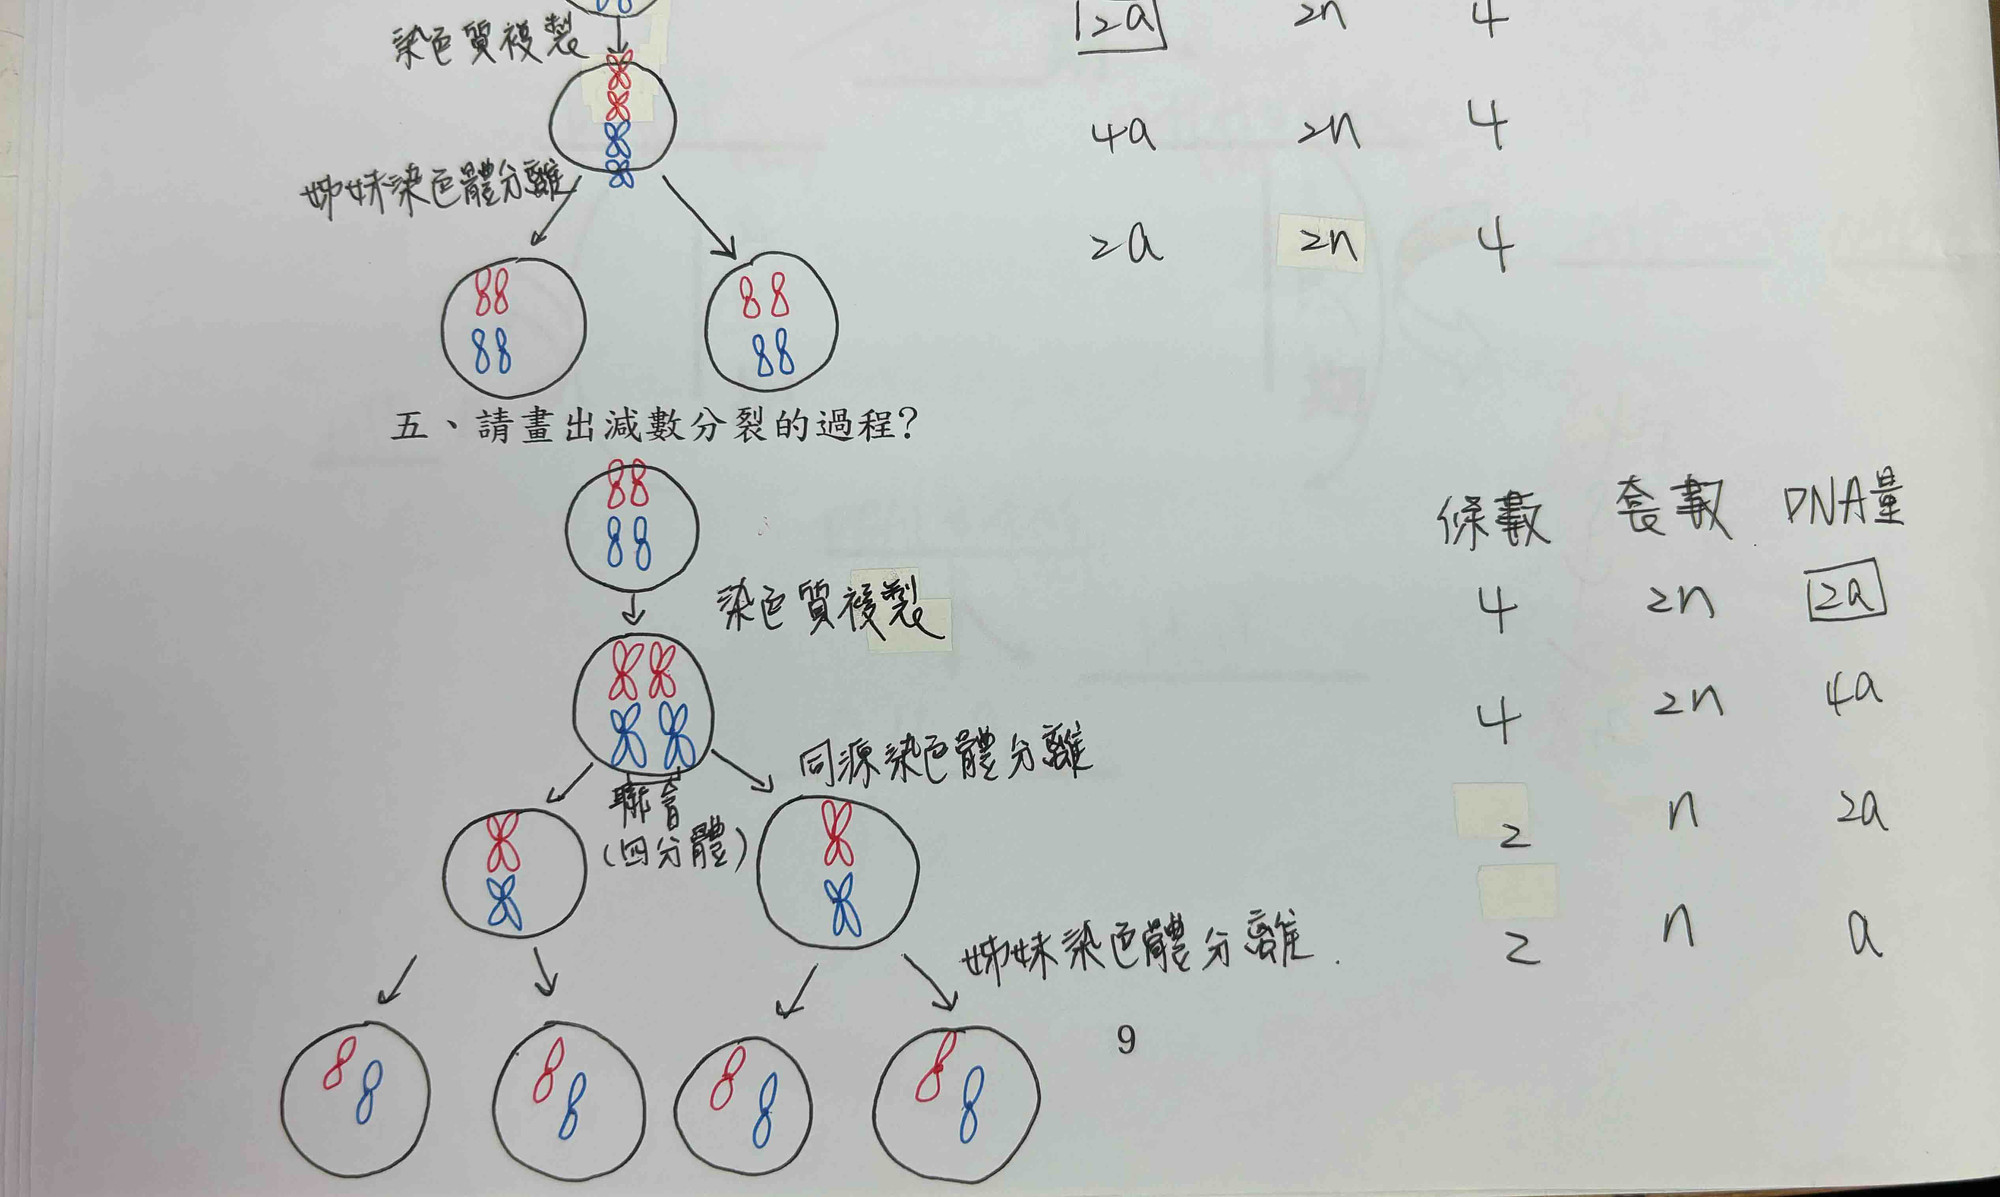 染色質複製
2a 2n 4
4a 2n 4
姊妹染色體分離
2a 2n 4
五、請畫出減數分裂的過程?
條數 套數 DNA量
4 2n 2a
染色質複製
4 2n 4a
同源染色體分離
聯會
(四分體)
2 n 2a
姊妹染色體分離.
2 n a
9